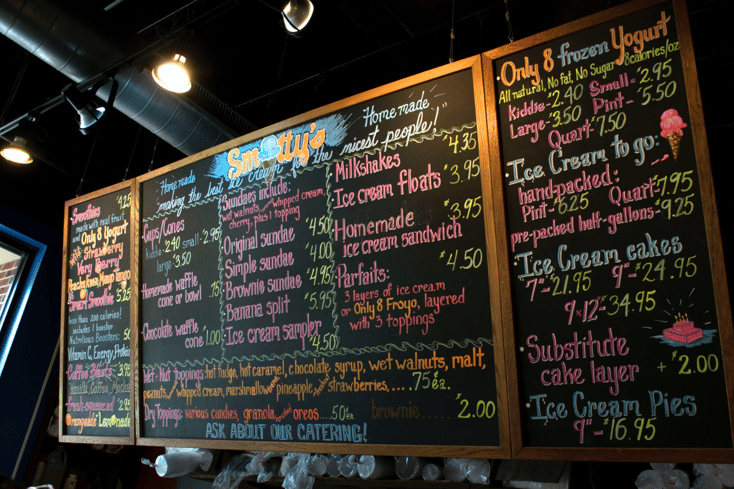 Smoothies 4.25
made with real fruit
and Only 8 Yogurt
Strawberry
Very Berry
Peach, Mango Tango
Smoothie 5.25
less than 200 calories!
includes 1 booster
Nutritious Boosters: .50
Vitamin C, Energy, Protein
Coffee Blasts
Vanilla, Coffee, Mocha
fresh-squeezed
Orangeade Lemonade
Smotty's
Home made
Home made
"making the best ice cream for the nicest people!"
Cups/Cones
Kiddie 2.40 small 2.95
large 3.50
Homemade waffle
cone or bowl .75
Chocolate waffle
cone 1.00
Sundaes include:
wet walnuts, whipped cream
cherry, plus 1 topping
Original sundae 4.50
Simple sundae 4.00
Brownie sundae 4.95
Banana split $5.95
Ice cream sampler 4.50
Milkshakes $4.35
Ice cream floats $3.95
Homemade $3.95
ice cream sandwich
Parfaits: $4.50
3 layers of ice cream
or Only 8 Froyo, layered
with 3 toppings
Wet-Nut Toppings: hot fudge, hot caramel, chocolate syrup, wet walnuts, malt,
peanuts, whipped cream, marshmallow, pineapple, strawberries......75¢ea.
Dry Toppings: various candies, granola, oreos.....50¢ea. brownie.......$2.00
ASK ABOUT OUR CATERING!
Only 8 frozen Yogurt
All natural, No fat, No Sugar 8calories/oz
Kiddie-2.40 Small-$2.95
Large-$3.50 Pint-$5.50
Quart $7.50
Ice Cream to go:
hand-packed:
Pint-$6.25 Quart $7.95
pre-packed half-gallons-$9.25
Ice Cream cakes
7"-$21.95 9"-$24.95
9x12"-$34.95
Substitute
cake layer +$2.00
Ice Cream Pies
9"-$16.95